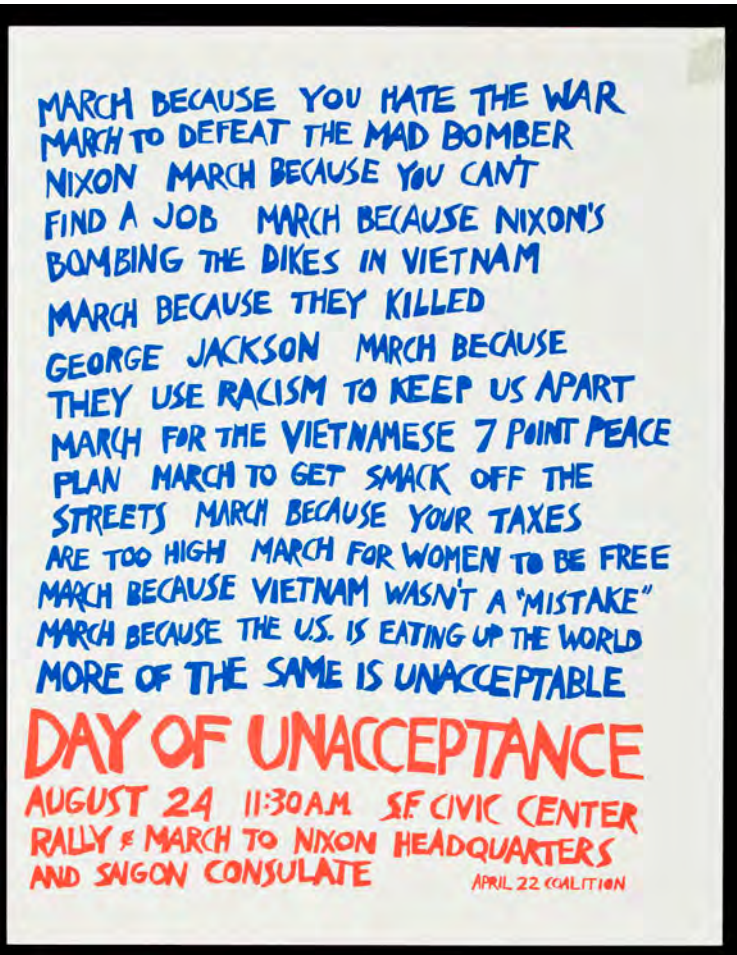 MARCH BECAUSE YOU HATE THE WAR
MARCH TO DEFEAT THE MAD BOMBER
NIXON MARCH BECAUSE YOU CAN'T
FIND A JOB MARCH BECAUSE NIXON'S
BOMBING THE DIKES IN VIETNAM
MARCH BECAUSE THEY KILLED
GEORGE JACKSON MARCH BECAUSE
THEY USE RACISM TO KEEP US APART
MARCH FOR THE VIETNAMESE 7 POINT PEACE
PLAN MARCH TO GET SMACK OFF THE
STREETS MARCH BECAUSE YOUR TAXES
ARE TOO HIGH MARCH FOR WOMEN TO BE FREE
MARCH BECAUSE VIETNAM WASN'T A "MISTAKE"
MARCH BECAUSE THE U.S. IS EATING UP THE WORLD
MORE OF THE SAME IS UNACCEPTABLE
DAY OF UNACCEPTANCE
AUGUST 24 11:30 A.M. S.F. CIVIC CENTER
RALLY & MARCH TO NIXON HEADQUARTERS
AND SAIGON CONSULATE
APRIL 22 COALITION